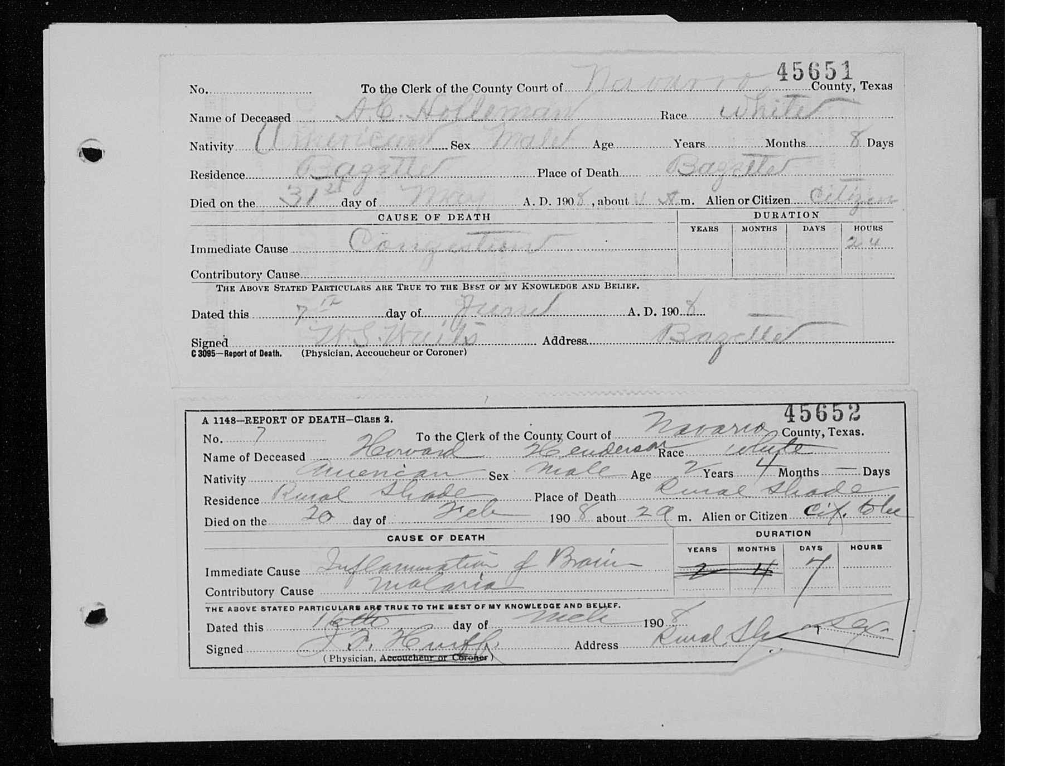 45651
No. To the Clerk of the County Court of Navarro County, Texas
Name of Deceased A.C. Holleman Race white
Nativity American Sex Male Age Years Months 8 Days
Residence Bazette Place of Death Bazette
Died on the 31st day of May A. D. 1908, about 4 A m. Alien or Citizen Citizen
CAUSE OF DEATH DURATION
YEARS MONTHS DAYS HOURS
Immediate Cause Congestion 24
Contributory Cause
THE ABOVE STATED PARTICULARS ARE TRUE TO THE BEST OF MY KNOWLEDGE AND BELIEF.
Dated this 7th day of June A. D. 1908
Signed W.S. Waits Address Bazette
C 3095—Report of Death. (Physician, Accoucheur or Coroner)
45652
A 1148—REPORT OF DEATH—Class 2.
No. 7 To the Clerk of the County Court of Navarro County, Texas.
Name of Deceased Howard Henderson Race white
Nativity American Sex Male Age 2 Years 4 Months — Days
Residence Rural Shade Place of Death Rural Shade
Died on the 20 day of Feb 1908 about 2 a m. Alien or Citizen
CAUSE OF DEATH DURATION
YEARS MONTHS DAYS HOURS
Immediate Cause Inflammation of Brain 2 4 7
Contributory Cause Malaria
THE ABOVE STATED PARTICULARS ARE TRUE TO THE BEST OF MY KNOWLEDGE AND BELIEF.
Dated this day of Mch 1908
Signed Address Rural Tex.
(Physician, Accoucheur or Coroner)